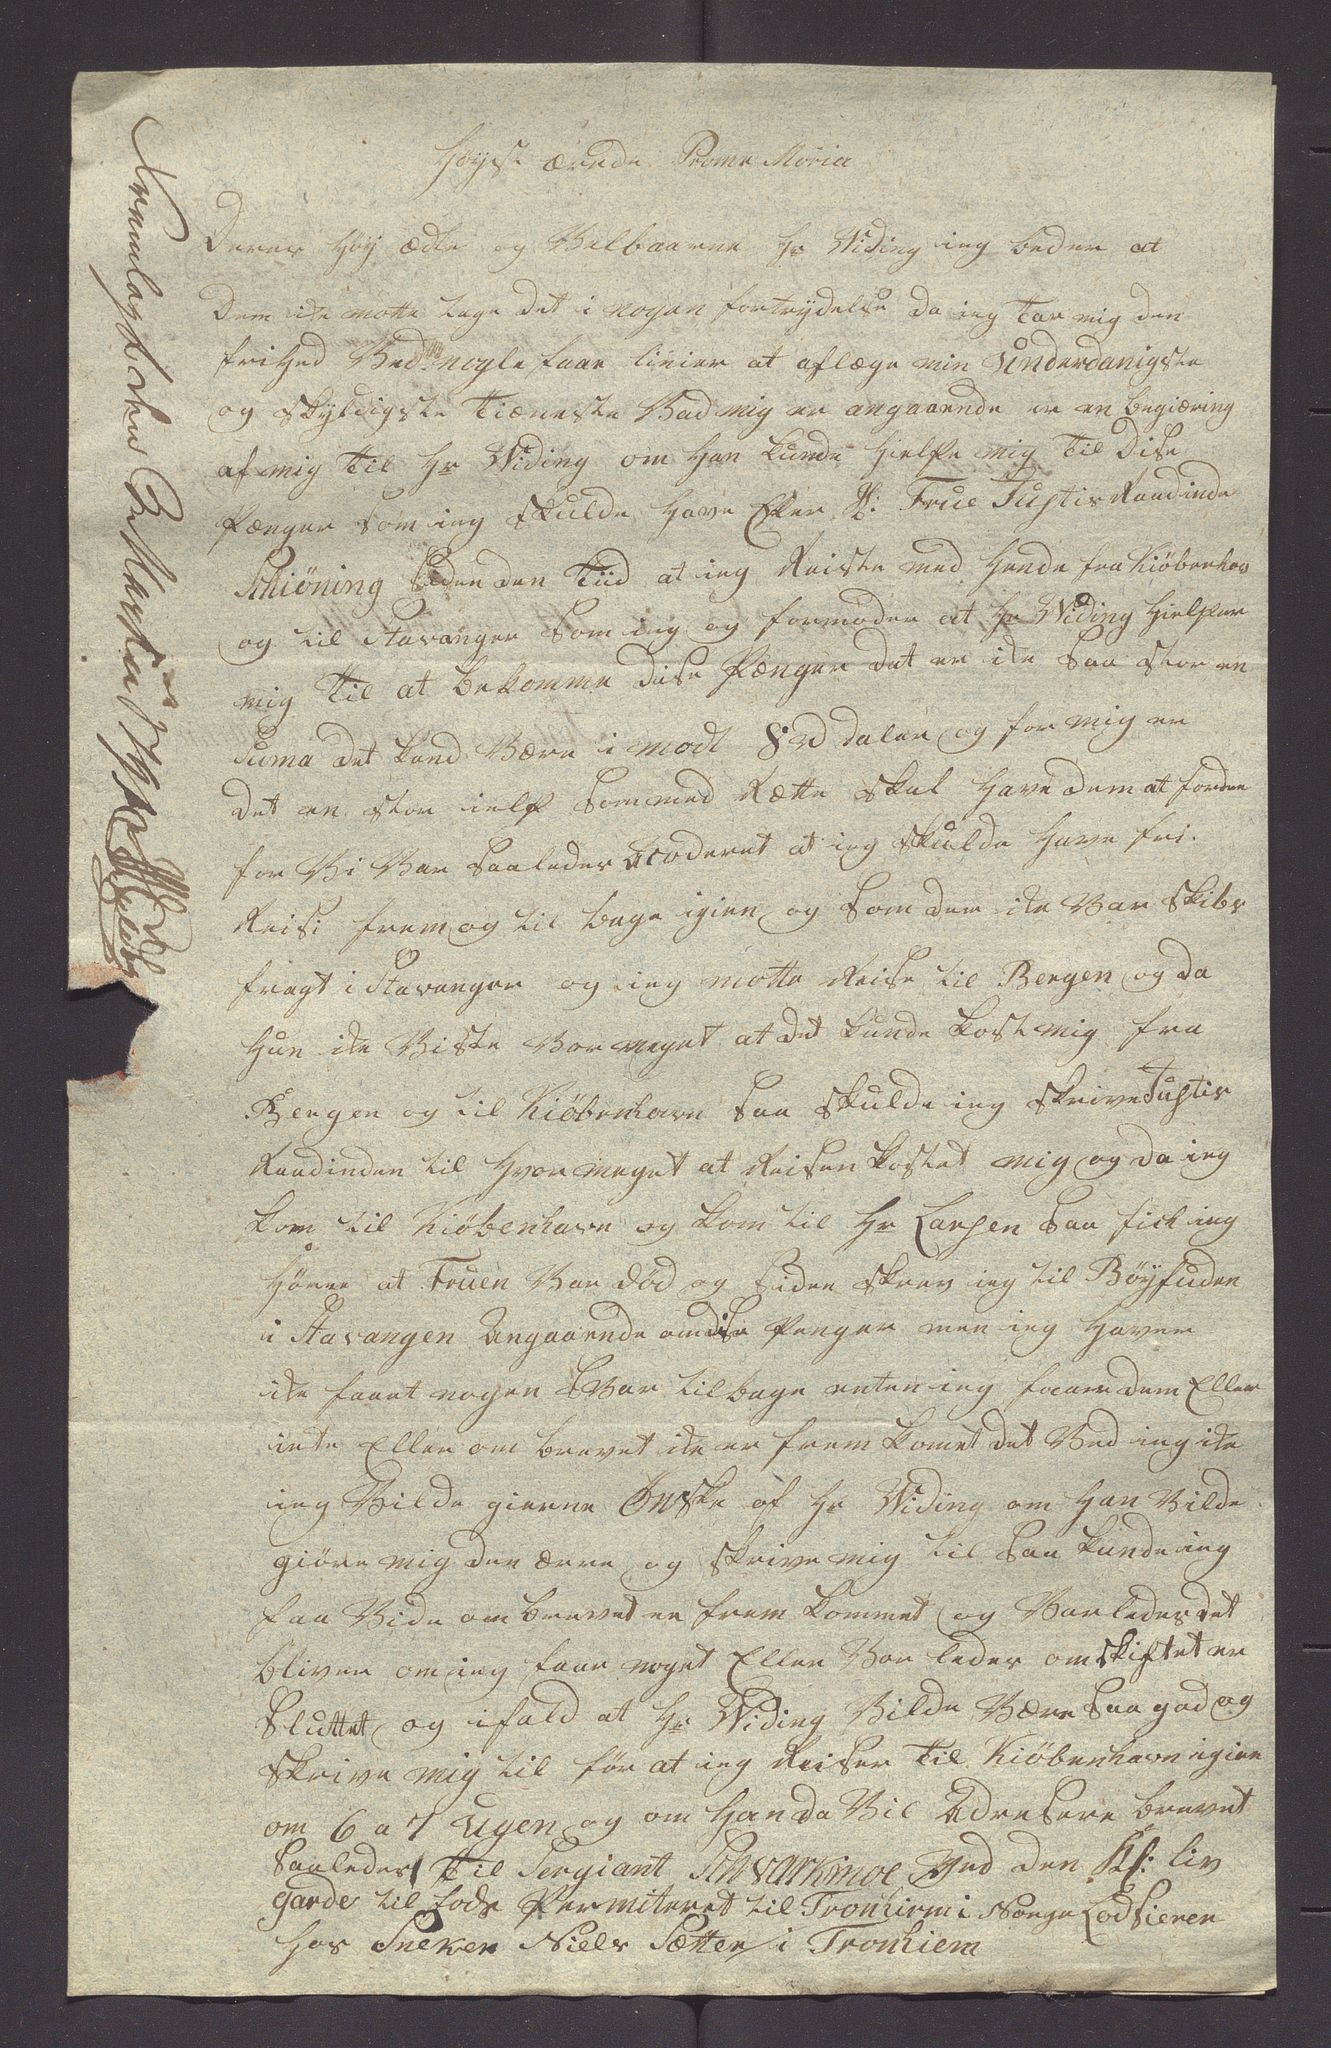 Høyst ærede Prome Moria
Deres Høy ædle og Velbaarne Hr Widing ieg beder at
Dem ike motte tage det i nogen fortrydelse da ieg Tar mig den
frihed Ved nogle faae linier at aflæge min Underdanigste
og skyldigste Tiæneste Vad mig er angaaende er en begiæring
af mig Til Hr Widing om Han kunde Hielpe mig Til dise
Pænger som ieg skulde Have Efter Sl: Frue Justis Raadinde
Schiöning Siden den Tiid at ieg Reiste med Hende fra Kiöbenhav
og til Stavanger som ieg og formoder at Hr Widing Hielper
mig Til at bekomme dise Pænger det er ike saa stor en
Suma det kand Være i modt 8 rd daler og for mig er
det en stor ielp som med Rætte skal Have dem at fordre
for Vi Var saaledes Acoderet at ieg skulde Have fri
Reise frem og til bage igien og som der ike Var skibs
fragt i Stavanger og ieg motte Reise til Bergen og da
Hun ike Viste Vor meget at det kunde kost mig fra
Bergen og til Kiöbenhavn saa skulde ieg skrive Justis
Raadinden til Hvor meget at Reisen kostet mig og da ieg
kom til Kiöbenhavn og kom til Hr Larsen saa fick ieg
Hörre at Fruen Var död og siden skrev ieg til Böyfuden
i Stavangen Angaaende om dise Penger men ieg Haver
ike faaet nogen SVar tilbage enten ieg faaer dem Eller
inte Eller om brevet ike er frem komet det Ved ieg ike
ieg Vilde gierne Önske af Hr Widing om Han Vilde
giöre mig den ærre og skrive mig til saa kunde ieg
faa Vide om brevet er frem kommet og Vorledes det
bliver om ieg faar noget Eller Vor ledes om skiftet er
sluttet og ifald at Hr Widing Vilde Være saa god og
skrive mig til för at ieg Reiser Til Kiöbenhavn igien
om 6 a 7 Ugen og om Han da Vil Adresere brevet
saaledes Til Sergiant Schvarkmoe Ved den Kl: liv
garde til fods Permiteret til Tronhiem i Norge Lodsieren
hos Sneker Niels Sætter i Tronhiem
Fremlagt